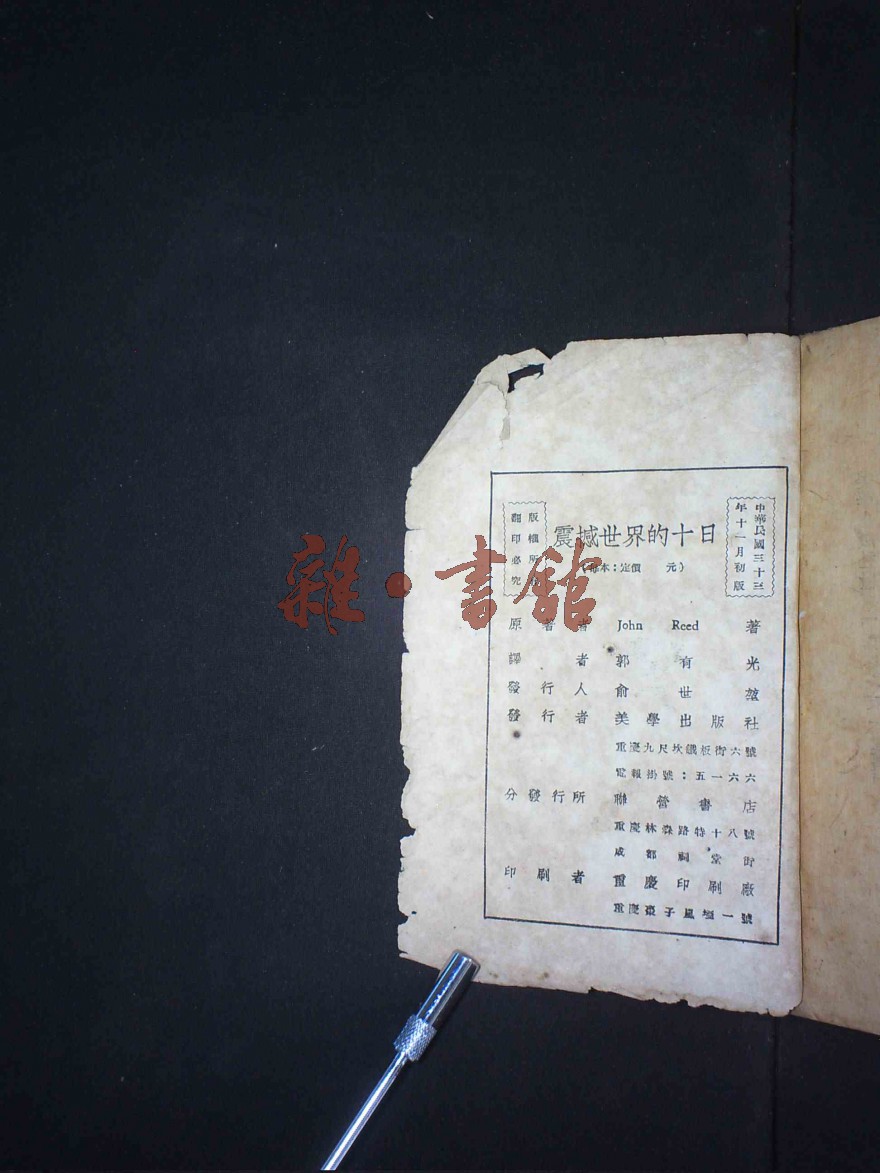 中華民國三十三
年十一月初版
震撼世界的十日
版權所
翻印必究
本：定價　元）
原著者　John Reed　著
譯者　郭有光
發行人　俞世堃
發行者　美學出版社
重慶九尺坎鐵板街六號
電報掛號：五一六六
分發行所　聯營書店
重慶林森路特十八號
成都祠堂街
印刷者　重慶印刷廠
重慶棗子嵐埡一號
雜·書館